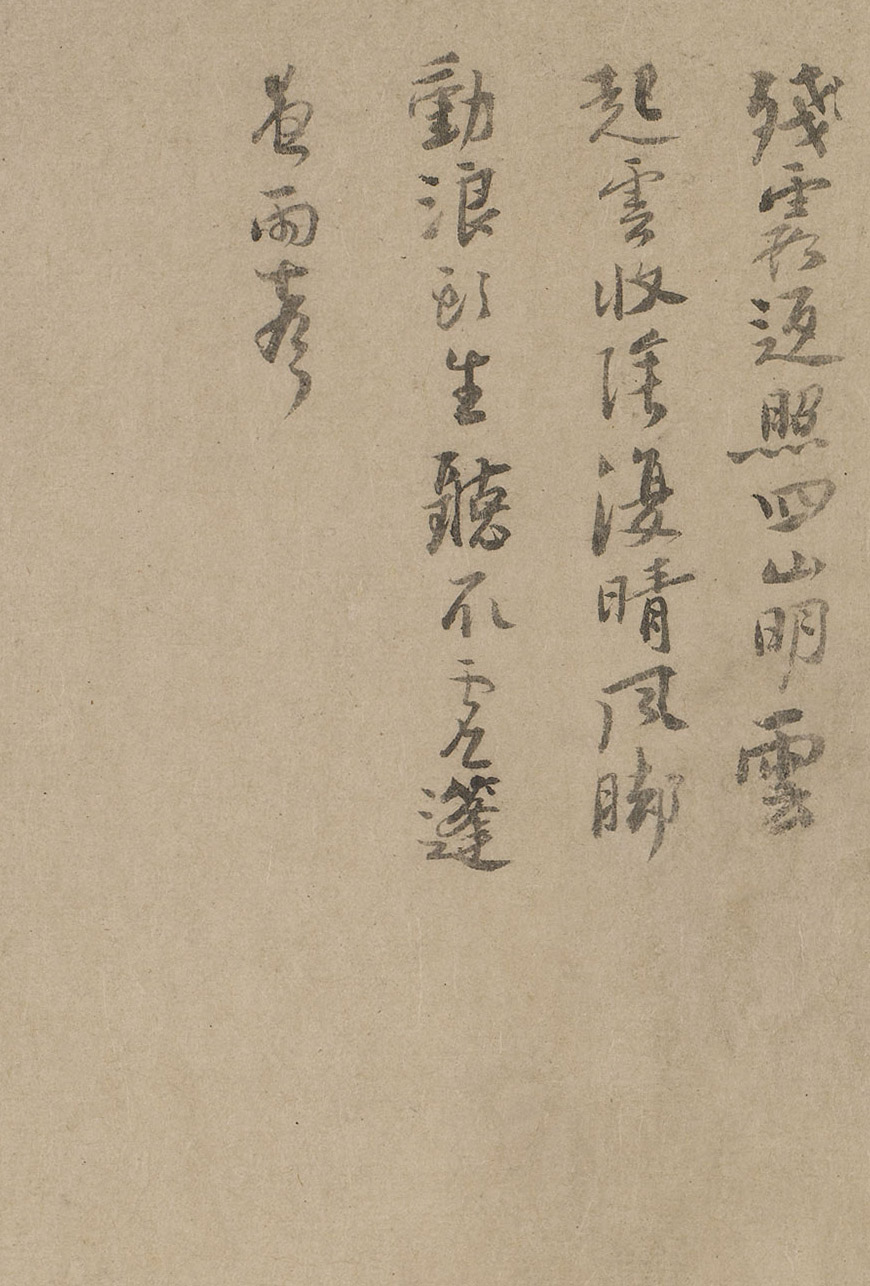 殘霞返照四山明雲
起雲收陰復晴風脚
動浪頭生聽取虛篷
夜雨聲